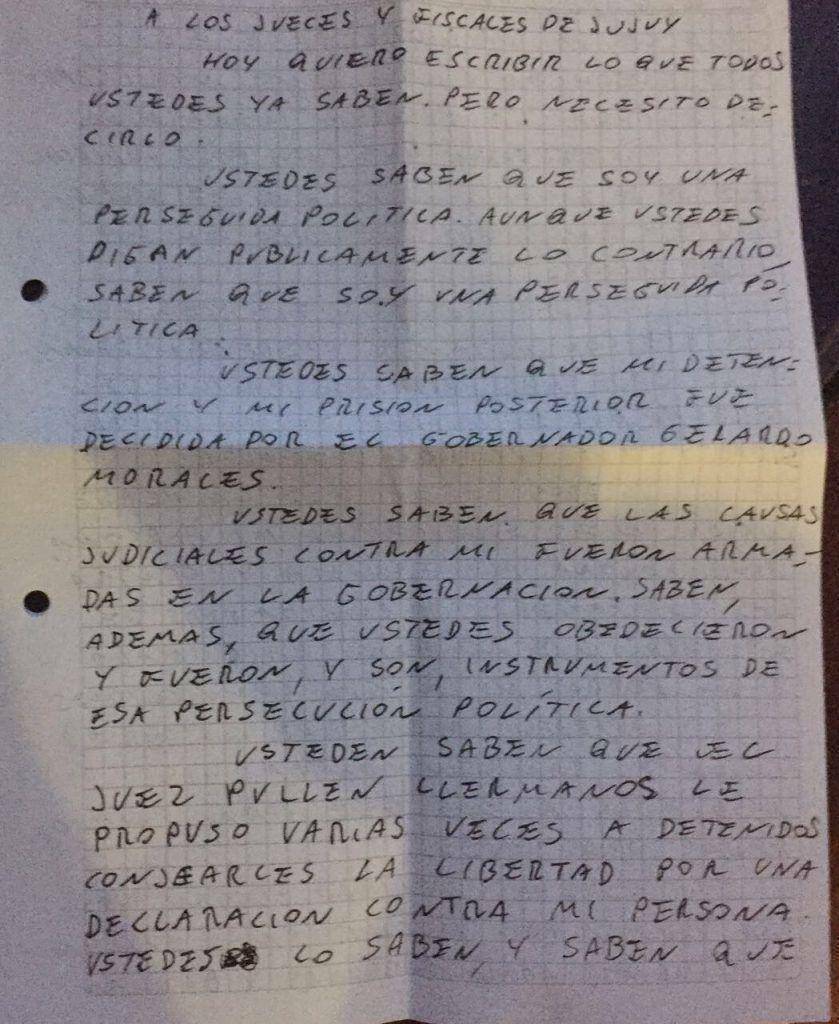 A LOS JUECES Y FISCALES DE JUJUY
HOY QUIERO ESCRIBIR LO QUE TODOS
USTEDES YA SABEN. PERO NECESITO DE-
CIRLO.
USTEDES SABEN QUE SOY UNA
PERSEGUIDA POLITICA. AUNQUE USTEDES
DIGAN PUBLICAMENTE LO CONTRARIO,
SABEN QUE SOY UNA PERSEGUIDA PO-
LITICA.
USTEDES SABEN QUE MI DETEN-
CION Y MI PRISION POSTERIOR FUE
DECIDIDA POR EL GOBERNADOR GERARDO
MORALES.
USTEDES SABEN QUE LAS CAUSAS
JUDICIALES CONTRA MI FUERON ARMA-
DAS EN LA GOBERNACION. SABEN,
ADEMAS, QUE USTEDES OBEDECIERON
Y FUERON, Y SON, INSTRUMENTOS DE
ESA PERSECUCIÓN POLÍTICA.
USTEDEN SABEN QUE EL
JUEZ PULLEN LLERMANOS LE
PROPUSO VARIAS VECES A DETENIDOS
CONJEARLES LA LIBERTAD POR UNA
DECLARACION CONTRA MI PERSONA.
USTEDES LO SABEN, Y SABEN QUE